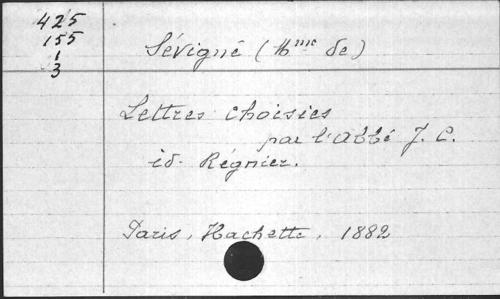 425
155
1
3
Sévigné (Mme de)
Lettres choisies
par l'Abbé J. C.
id. Régnier.
Paris, Hachette, 1882